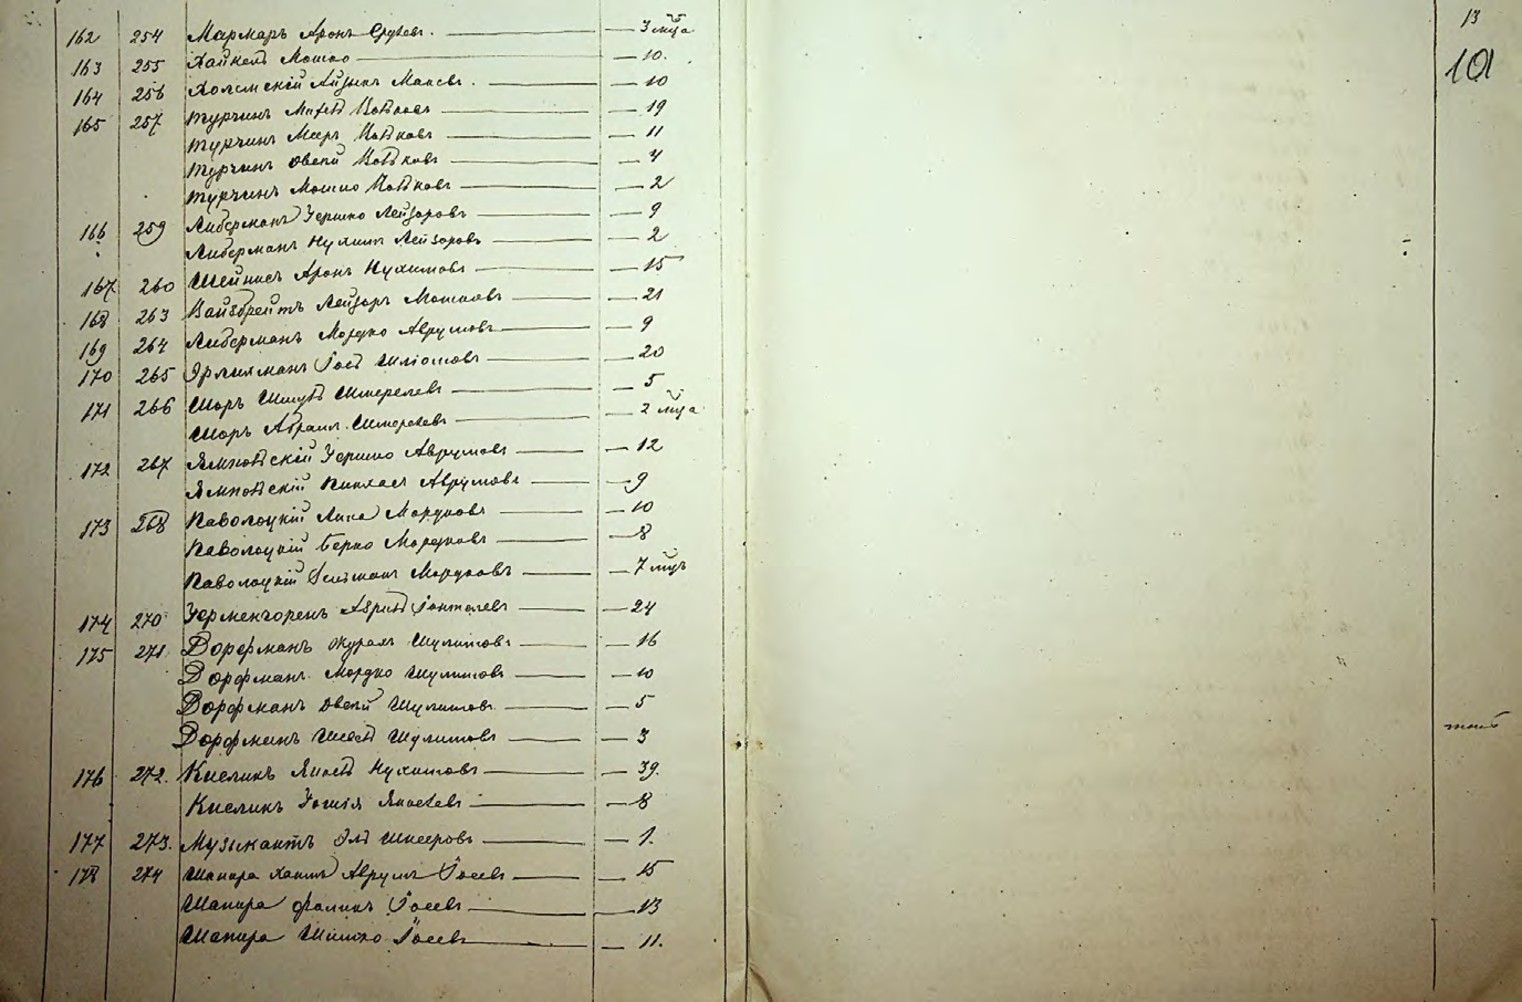 13
101
162 254 Мармаръ Аронъ Срулевъ. — 3 мѣца
163 255 Хайкелъ Мошко — 10.
164 256 Холемскій Айзыкъ — 10
165 257 Турчинъ Вольковъ — 19
Турчинъ Мееръ Вольковъ — 11
Турчинъ Овсей Вольковъ — 4
Турчинъ Мошко Вольковъ — 2
166 259 Либерманъ Гершко Лейзоровъ — 9
Либерманъ Нухимъ Лейзоровъ — 2
167 260 Шейнисъ Аронъ Нухимовъ — 15
168 263 Вайзбрейтъ Лейзоръ Мошковъ — 21
169 264 Либерманъ Мордко Аврумовъ — 9
170 265 Эрлихманъ Іось Шліомовъ — 20
171 266 Шоръ Шмуль Шмерелевъ — 5
Шоръ Абрамъ Шмерелевъ — 2 мѣца
172 267 Ямпольскій Гершко Аврумовъ — 12
Ямпольскій Пинхасъ Аврумовъ — 9
173 268 Паволоцкій Мордковъ — 10
Паволоцкій Берко Мордковъ — 8
Паволоцкій Мордковъ — 7 мѣцъ
174 270 — 24
175 271 Дорфманъ Шулимовъ — 16
Дорфманъ Мордко Шулимовъ — 10
Дорфманъ Овсей Шулимовъ — 5
Дорфманъ Шулимовъ — 3
176 272. Киселикъ Янкель Нухимовъ — 39.
Киселикъ Янкелевъ — 8
177 273. Музыкантъ Эль — 1.
178 274 Шапира Хаимъ Аврумъ Іосевъ — 15
Шапира Фаликъ Іосевъ — 13
Шапира Шимко Іосевъ — 11.